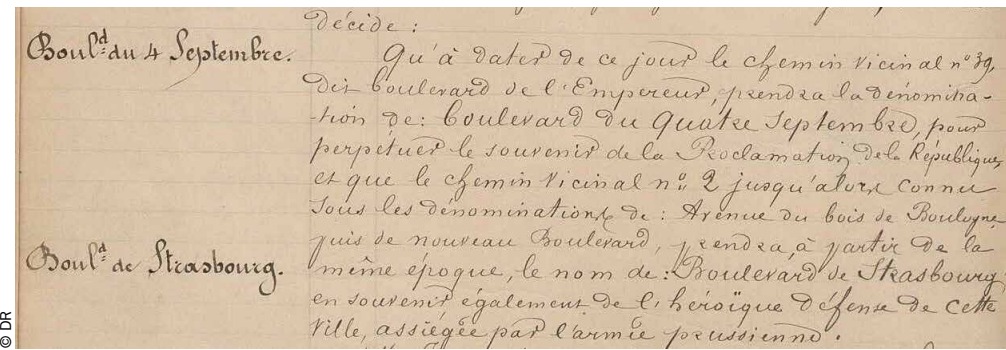 décide :
Boul.d du 4 Septembre.
Qu'à dater de ce jour le chemin vicinal n° 39,
dit boulevard de l'Empereur, prendra la dénomina-
-tion de : boulevard du Quatre Septembre, pour
perpétuer le souvenir de la Proclamation de la République,
et que le chemin vicinal n° 2 jusqu'alors connu
sous les dénominations de : Avenue du bois de Boulogne,
puis de nouveau Boulevard, prendra, à partir de la
Boul.d de Strasbourg.
même époque, le nom de : Boulevard de Strasbourg
en souvenir également de l'héroïque défense de cette
ville, assiégée par l'armée prussienne.
© DR